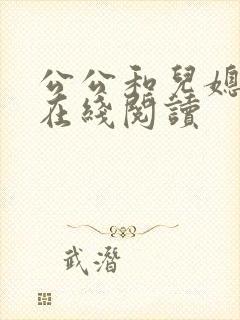 公公和兒媳
在綫閱讀
武潛